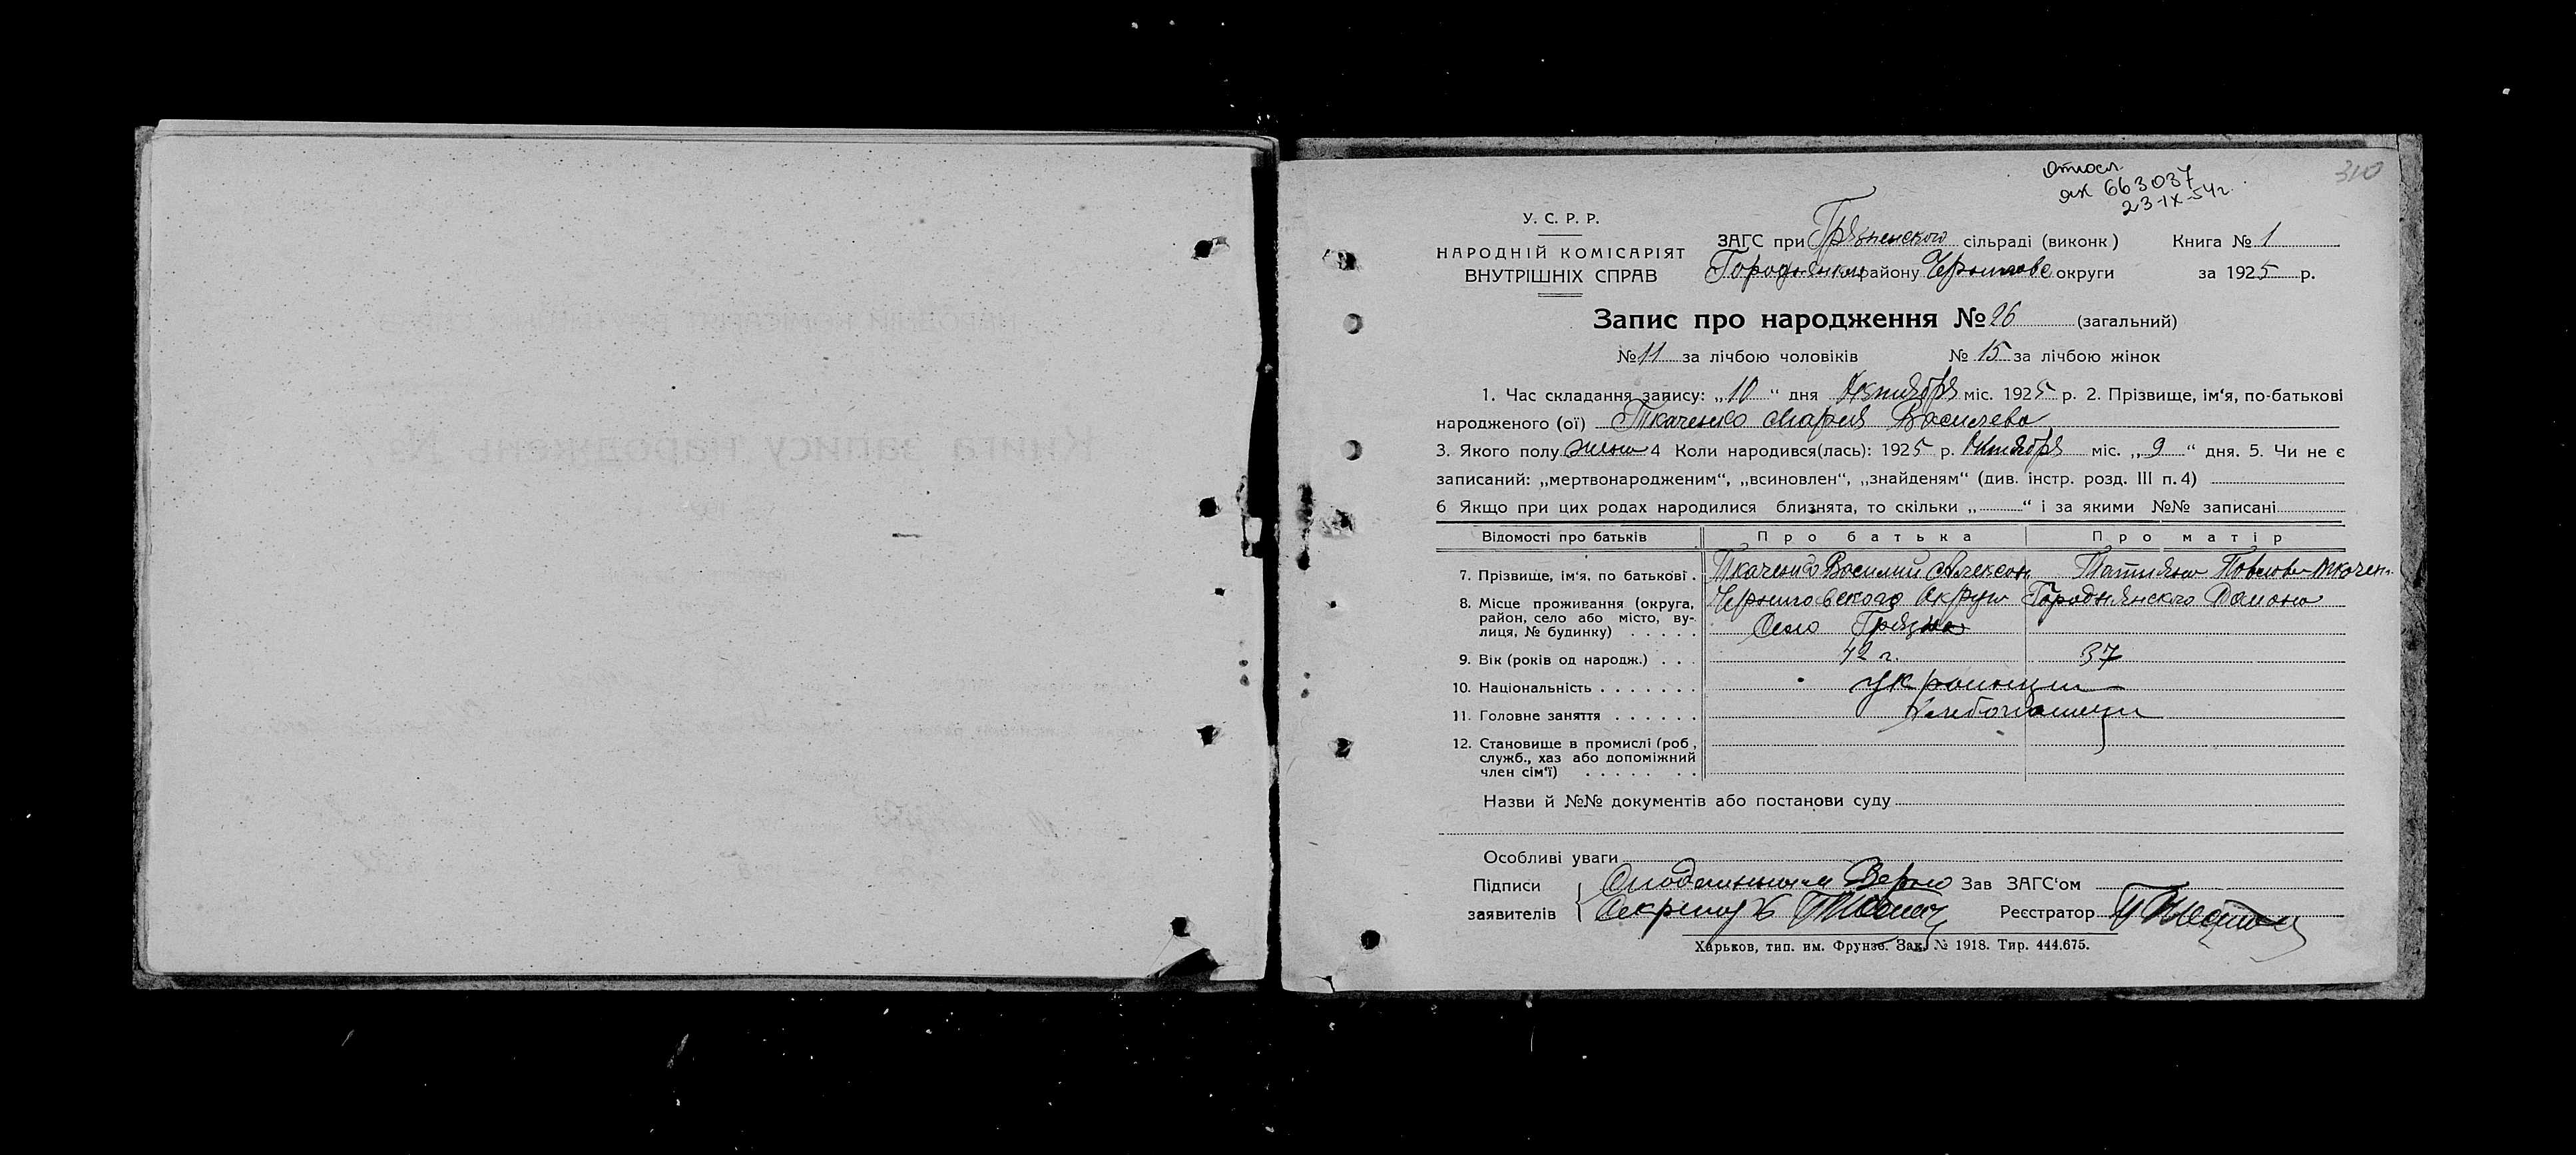 310
Относл.
ЯХ 663037
23-IX-54г.
У. С. Р. Р.
НАРОДНІЙ КОМІСАРІЯТ
ВНУТРІШНІХ СПРАВ
ЗАГС при Грязненского сільраді (виконк) Книга № 1
району округи за 1925 р.
Запис про народження № 26 (загальний)
№ 11 за лічбою чоловіків № 15 за лічбою жінок
1. Час складання запису: „10“ дня Октября міс. 1925 р. 2. Прізвище, ім‘я, по-батькові
народженого (ої) Ткаченко Мария Васильева
3. Якого полу жен 4 Коли народився(лась): 1925 р. Октября міс. „9“ дня. 5. Чи не є
записаний: „мертвонародженим“, „всиновлен“, „знайденям“ (див. інстр. розд. III п. 4)
6 Якщо при цих родах народилися близнята, то скільки „ “ і за якими №№ записані
Відомості про батьків Про батька Про матір
7. Прізвище, ім‘я, по батькові. Ткаченко Василий Алексан Татьяна Павлова Ткачен
8. Місце проживання (округа, Черниговского Округа Городнянского Района
район, село або місто, ву- Село Грязна
лиця, № будинку)
9. Вік (років од народж.) 42 г. 37
10. Національність украинцы
11. Головне заняття Хлебопашцы
12. Становище в промислі (роб,
служб., хаз або допоміжний
член сім‘ї)
Назви й №№ документів або постанови суду
Особливі уваги
Підписи С подлинным Верно Зав ЗАГС‘ом
заявителів Секретарь Реєстратор
Харьков, тип. им. Фрунзе. Зак. № 1918. Тир. 444.675.